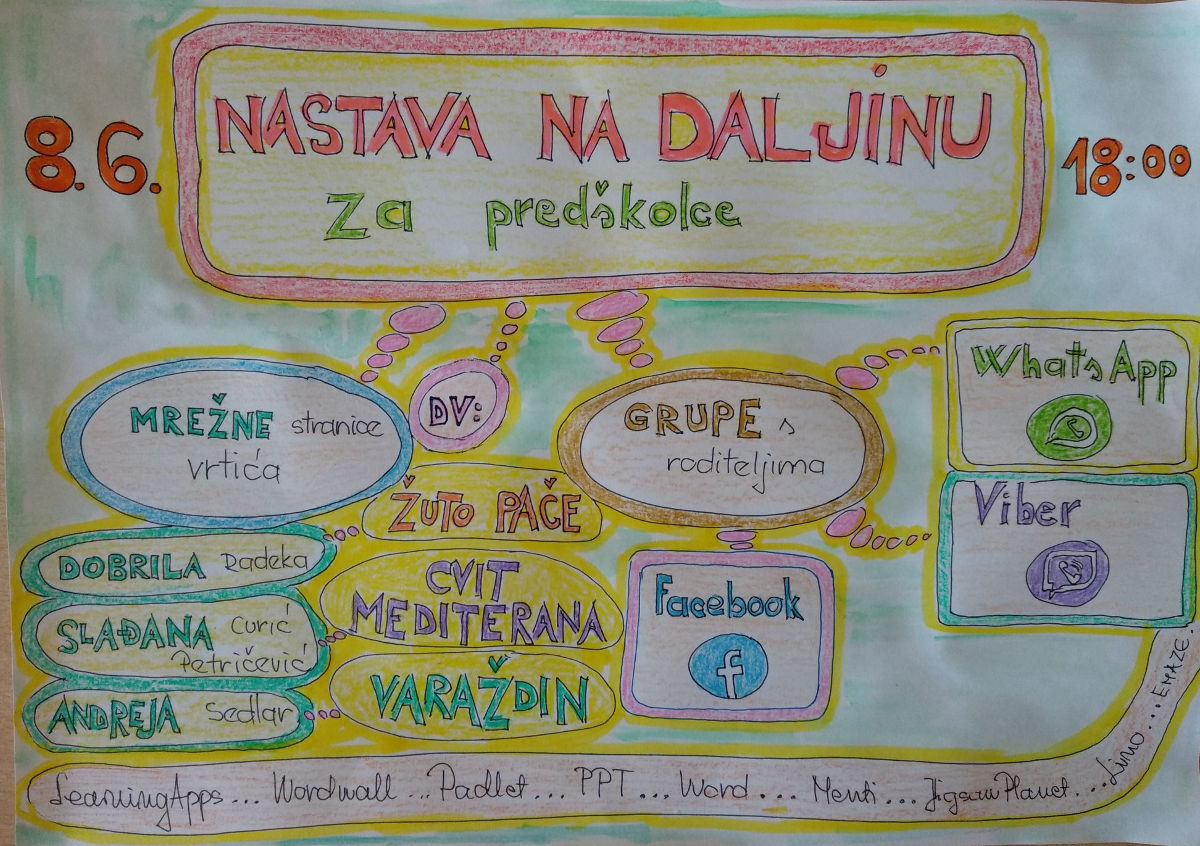 8.6.
NASTAVA NA DALJINU
18:00
za predškolce
MREŽNE stranice
vrtića
DV:
GRUPE s
roditeljima
WhatsApp
Viber
Facebook
f
ŽUTO PAČE
DOBRILA Radeka
CVIT
MEDITERANA
SLAĐANA Ćurić
Petričević
VARAŽDIN
ANDREJA Sedlar
LearningApps... Wordwall... Padlet... PPT... Word... Menti... JigsawPlanet... Lino...EMAZE.